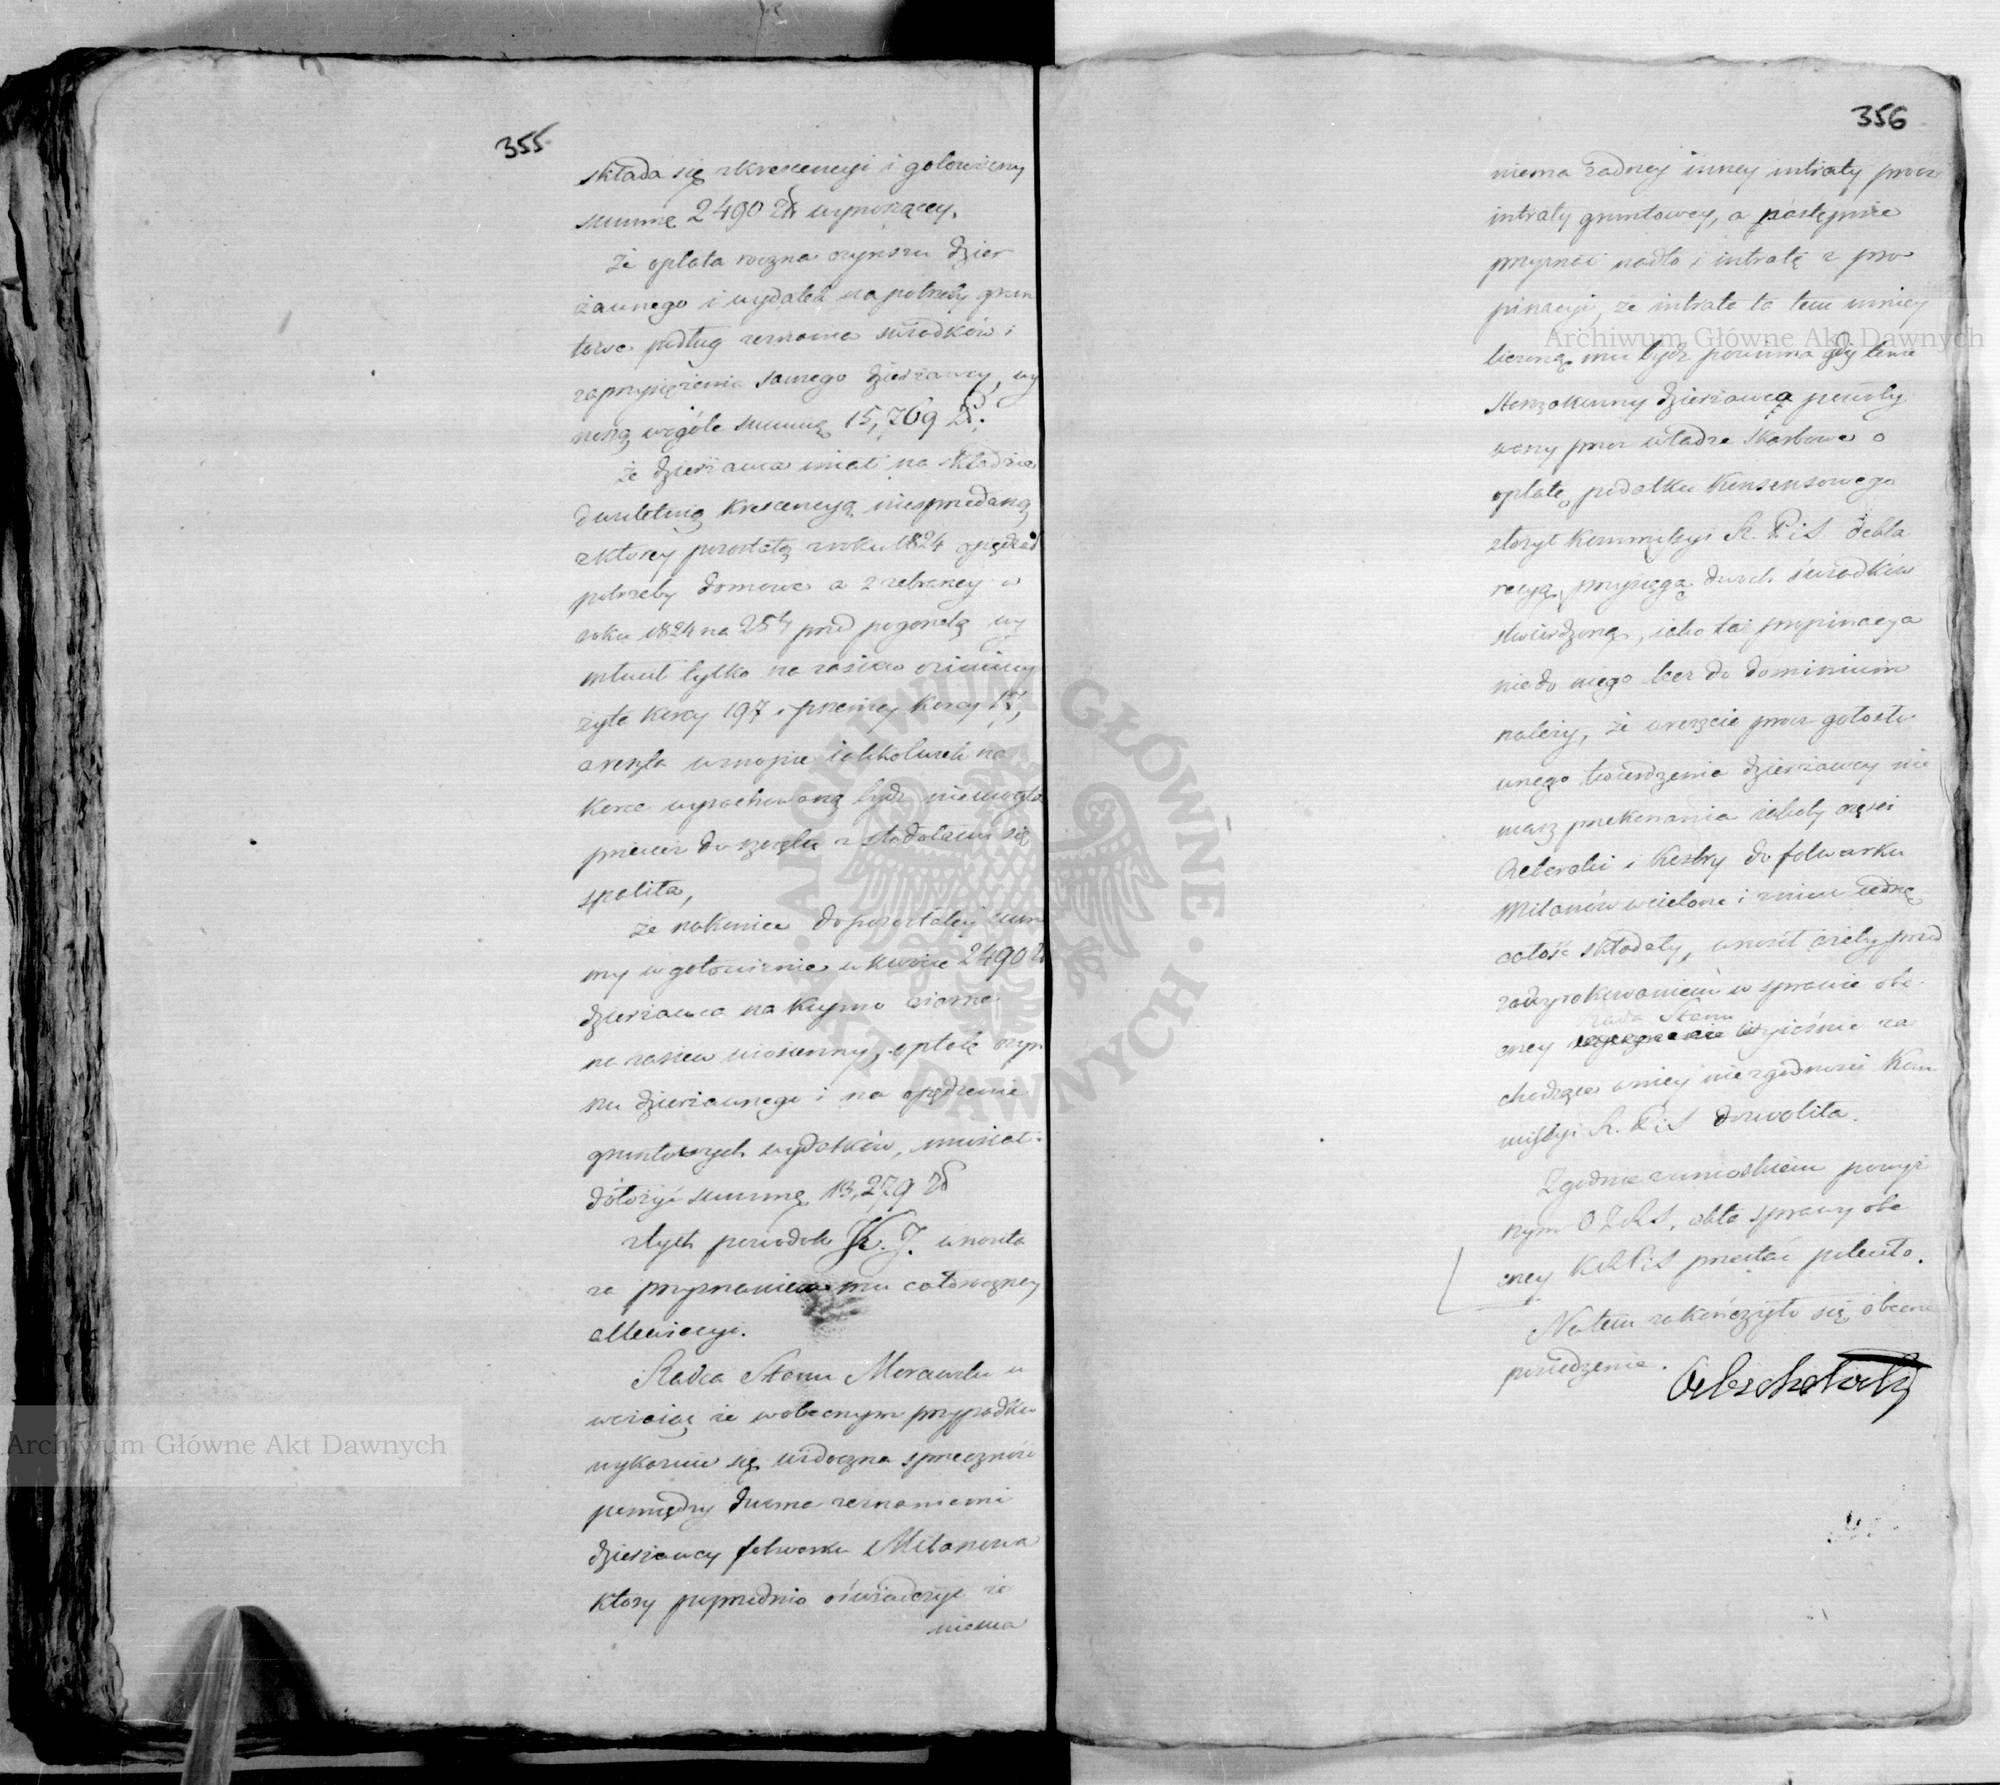 355
składa się z krescencyi i gotowizny
summę 2490 zł wynoszącey.
że opłata roczna czynszu dzier
żawnego i wydatek na potrzeby grun
towe podług zeznania świadków i
zaprzysiężenia samego dzierżawcy, wy
noszą wogóle summę 15,769 zł.
że dzierżawca miał na składzie
dwuletnią krescencyą niesprzedaną
z którey pozostałą z roku 1824 opędzał
potrzeby domowe a z zebraney w
roku 1824 na 25ty przed pogorzelą wy
młócił tylko na zasiew oziminy
żyta korcy 197 i pszenicy korcy 17,
a reszta w snopie iakkolwiek na
korce wyrachowaną bydź niemogła
przecież do szczętu z stodołami się
spaliła,
że nakoniec do pozostałey sum
my w gotowiźnie w kwocie 2490 zł
dzierżawca na kupno ziarna
na zasiew wiosenny, opłatę czyn
szu dzierżawnego i na opędzenie
gruntowych wydatków, musiał
dołożyć summę 13,279 zł
z tych powodów K. J. wnosiła
za przyznaniem mu całoroczney
allewiacyi.
Radca Stanu Morawski u
ważaiąc że w obecnym przypadku
wykazuie się widoczna sprzeczność
pomiędzy dwoma zeznaniami
dzierżawcy folwarku Milanowa
który poprzednio oświadczył że
niema
356
niema żadney inney intraty prócz
intraty gruntowey, a następnie
przyznał nadto i intratę z pro
pinacyi, że intrata ta tem mniey
liczoną mu bydź powinna gdy tenże
Starozakonny dzierżawca powoły
wany przez władze Skarbowe o
opłatę podatku Konsensowego
złożył Kommissyi R. P. i S. dekla
racyą przysięgą dwóch świadków
stwierdzoną, iako taż propinacya
nie do niego lecz do dominium
należy, że wreszcie prócz gołosło
wnego twierdzenia dzierżawcy nie
masz przekonania iakoby części
i do folwarku
Milanów wcielone i z nim iedną
całość składały, wnosił ażeby przed
zawyrokowaniem w sprawie obe
Rada Stanu
cney wyiaśnić za
chodzące w niey niezgodności Kom
missyi R. P. i S dozwoliła.
Zgodnie z wnioskiem powyż
szym akta sprawy obe
cney K R P i S przesłać poleciła.
Na tem zakończyło się obecne
posiedzenie.
Archiwum Główne Akt Dawnych
Archiwum Główne Akt Dawnych
ARCHIWUM GŁÓWNE AKT DAWNYCH